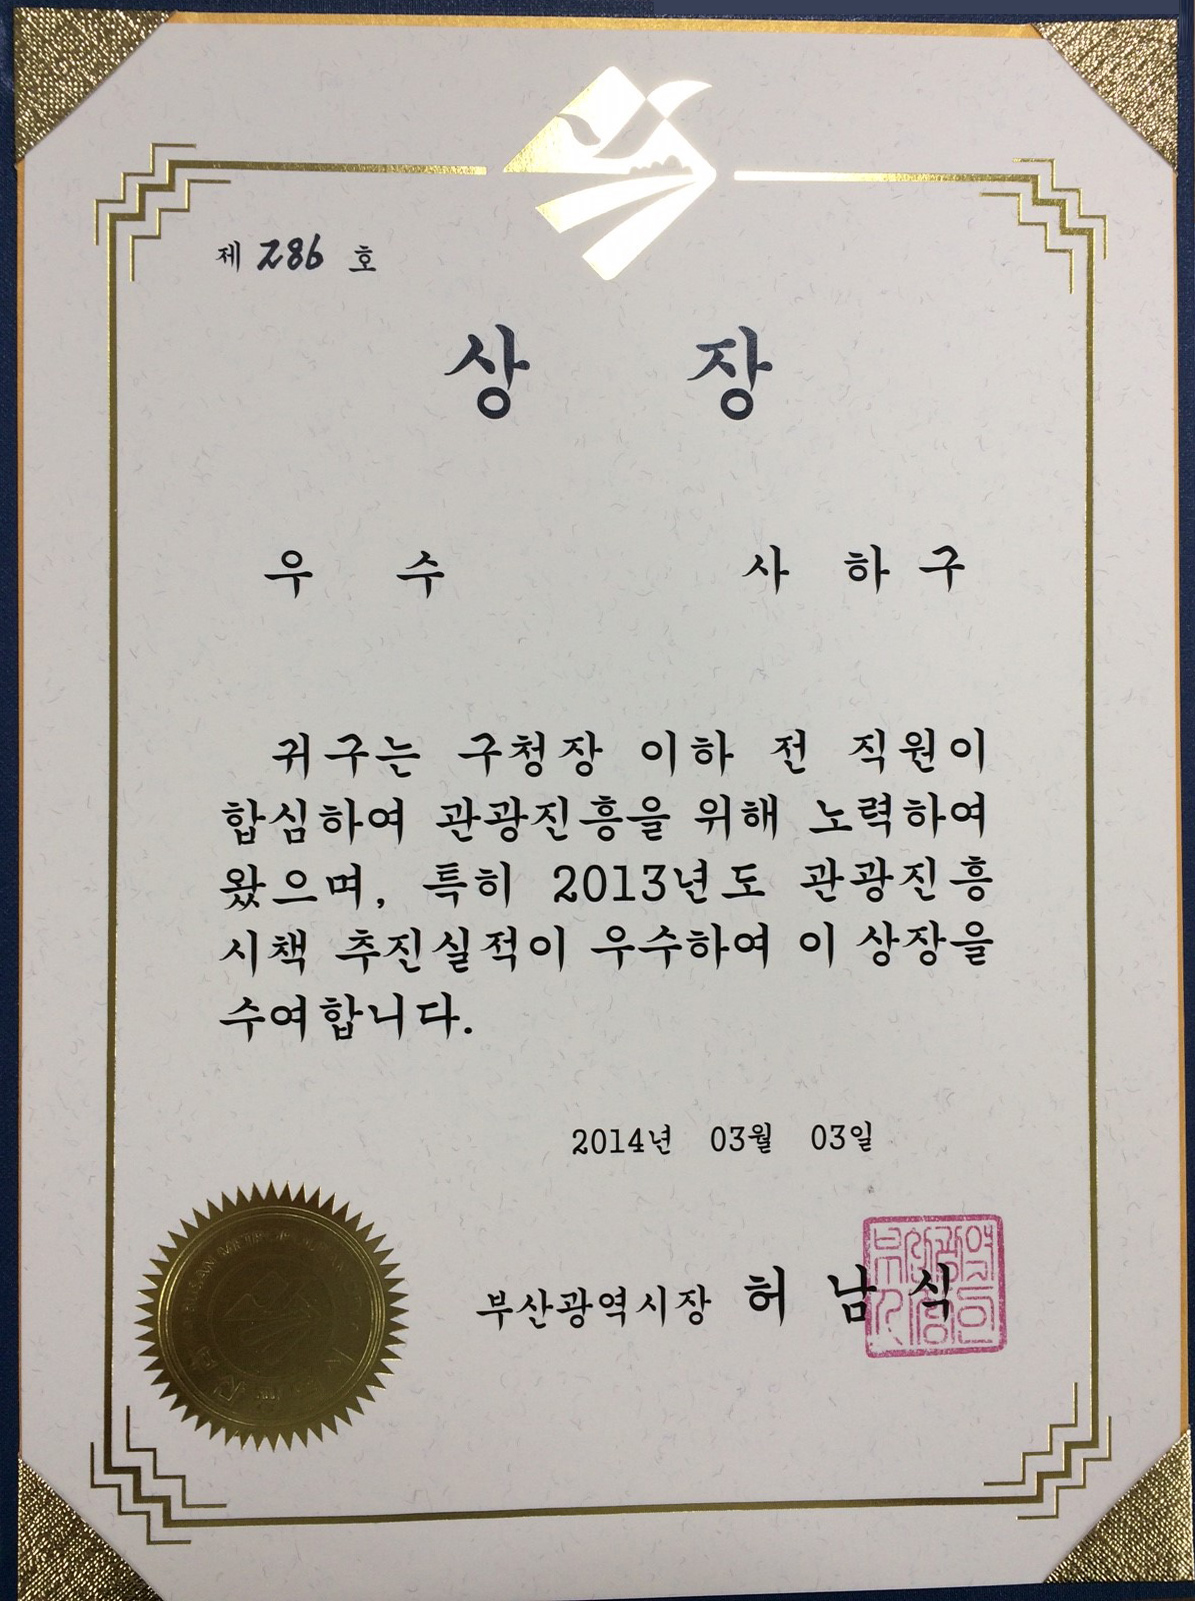 제 286 호
상 장
우 수 사 하 구
귀구는 구청장 이하 전 직원이
합심하여 관광진흥을 위해 노력하여
왔으며, 특히 2013년도 관광진흥
시책 추진실적이 우수하여 이 상장을
수여합니다.
2014년 03월 03일
부산광역시장 허 남 식